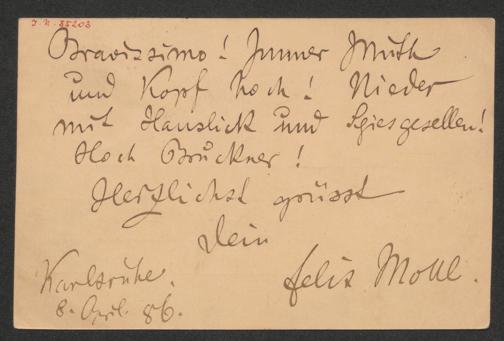 J.N. 35203
Bravissimo! Immer Muth
und Kopf hoch! Nieder
mit Hanslick und Spiesgesellen!
Hoch Bruckner!
Herzlichst grüsst
Dein
Felix Mottl.
Karlsruhe.
8. April. 86.